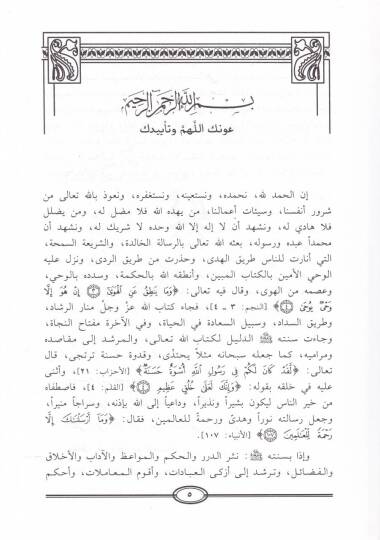 بسم الله الرحمن الرحيم
عونك اللهم وتأييدك
إن الحمد لله، نحمده، ونستعينه، ونستغفره، ونعوذ بالله تعالى من
شرور أنفسنا، وسيئات أعمالنا، من يهده الله فلا مضل له، ومن يضلل
فلا هادي له، ونشهد أن لا إله إلا الله وحده لا شريك له، ونشهد أن
محمداً عبده ورسوله، بعثه الله تعالى بالرسالة الخالدة، والشريعة السمحة،
التي أنارت للناس طريق الهدى، وحذرت من طريق الردى، ونزل عليه
الوحي الأمين بالكتاب المبين، وأنطقه الله بالحكمة، وسدده بالوحي،
وعصمه من الهوى، وقال فيه تعالى: ﴿وَمَا يَنطِقُ عَنِ الْهَوَىٰ ۝٣ إِنْ هُوَ إِلَّا
وَحْيٌ يُوحَىٰ ۝٤﴾ [النجم: ٣ ـ ٤]، فجاء كتاب الله عزّ وجلّ منار الرشاد،
وطريق السداد، وسبيل السعادة في الحياة، وفي الآخرة مفتاح النجاة،
وجاءت سنته ﷺ الدليل لكتاب الله تعالى، والمرشد إلى مقاصده
ومراميه، كما جعله سبحانه مثلاً يحتذى، وقدوة حسنة ترتجى، قال
تعالى: ﴿لَّقَدْ كَانَ لَكُمْ فِي رَسُولِ اللَّهِ أُسْوَةٌ حَسَنَةٌ﴾ [الأحزاب: ٢١]، وأثنى
عليه في خلقه بقوله: ﴿وَإِنَّكَ لَعَلَىٰ خُلُقٍ عَظِيمٍ ۝٤﴾ [القلم: ٤]، فاصطفاه
من خير الناس ليكون بشيراً ونذيراً، وداعياً إلى الله بإذنه، وسراجاً منيراً،
وجعل رسالته نوراً وهدىً ورحمةً للعالمين، فقال: ﴿وَمَا أَرْسَلْنَاكَ إِلَّا
رَحْمَةً لِّلْعَالَمِينَ ۝١٠٧﴾ [الأنبياء: ١٠٧].
وإذا بسنته ﷺ: نثر الدرر والحكم والمواعظ والآداب والأخلاق
والفضائل، وترشد إلى أزكى العبادات، وأقوم المعاملات، وأحكم
٥